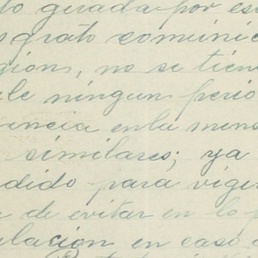 to guada por es
s grato comunic
gion, no se tien
le ningun perio
rencia en la mens
similares; ya
dido para vige
de evitar en lo p
ulacion en caso d